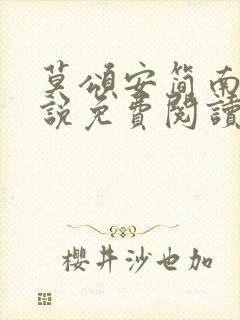 莫頌安簡南
說免費閱讀
櫻井沙也加